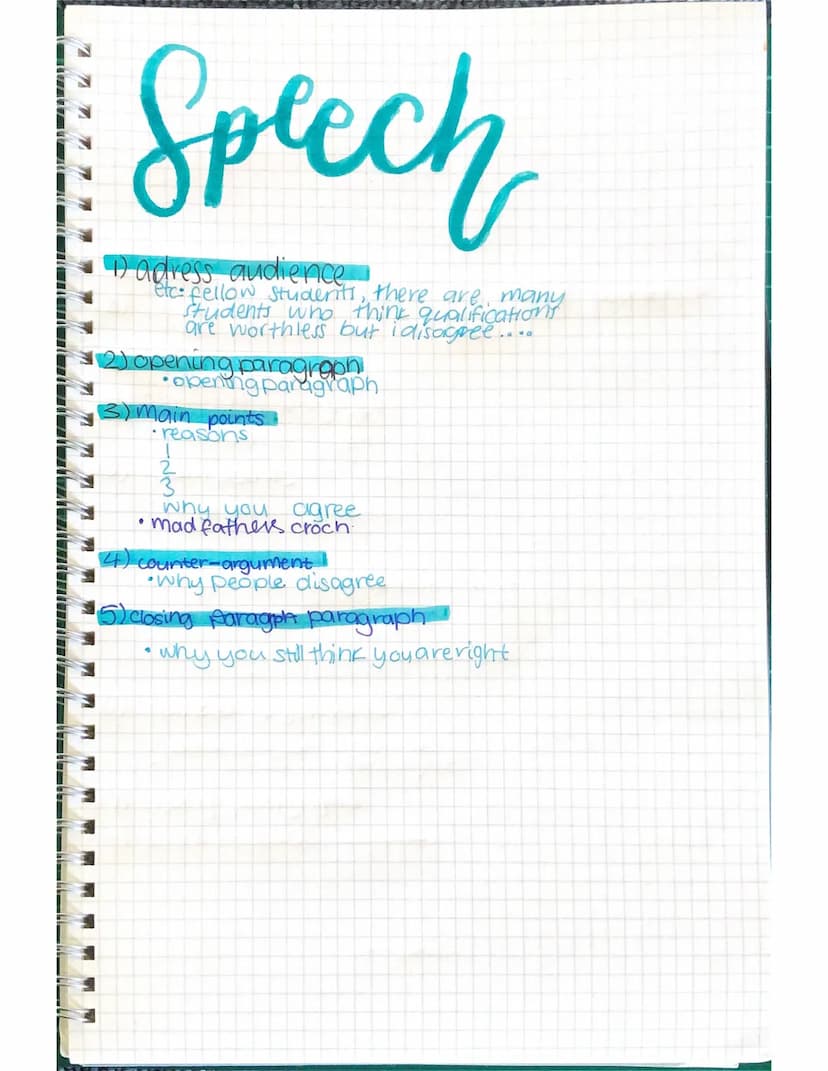 Speech
1) adress audience
etc: fellow students, there are many
students who think qualifications
are worthless but i disagree....
2) opening paragraph
• opening paragraph
3) main points
• reasons
1
2
3
why you agree
• mad fathers croch
4) counter-argument
• why people disagree
5) closing paragph paragraph
• why you still think you are right